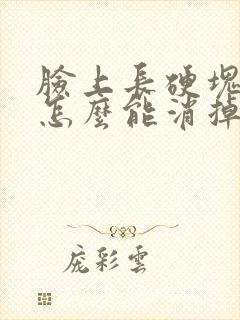 臉上長硬塊
怎麼能消掉
庞彩雲